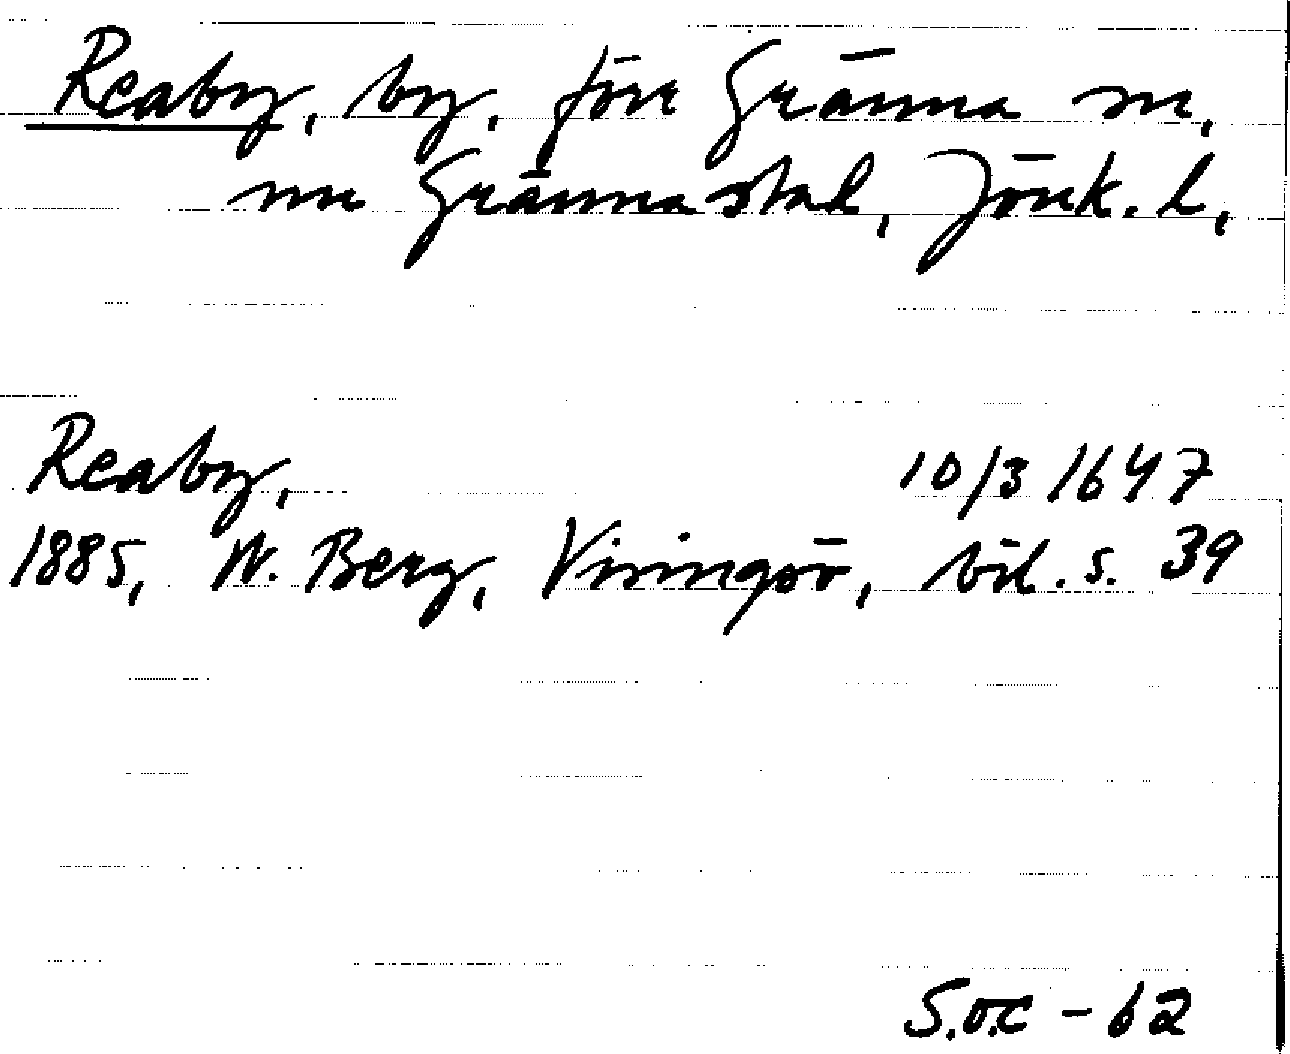 Reaby, by, förr Gränna sn,
nu Gränna stad, Jönk. l,
Reaby, 10/3 1647
1885, W. Berg, Visingsö, bil. s. 39
S.O.C - 62